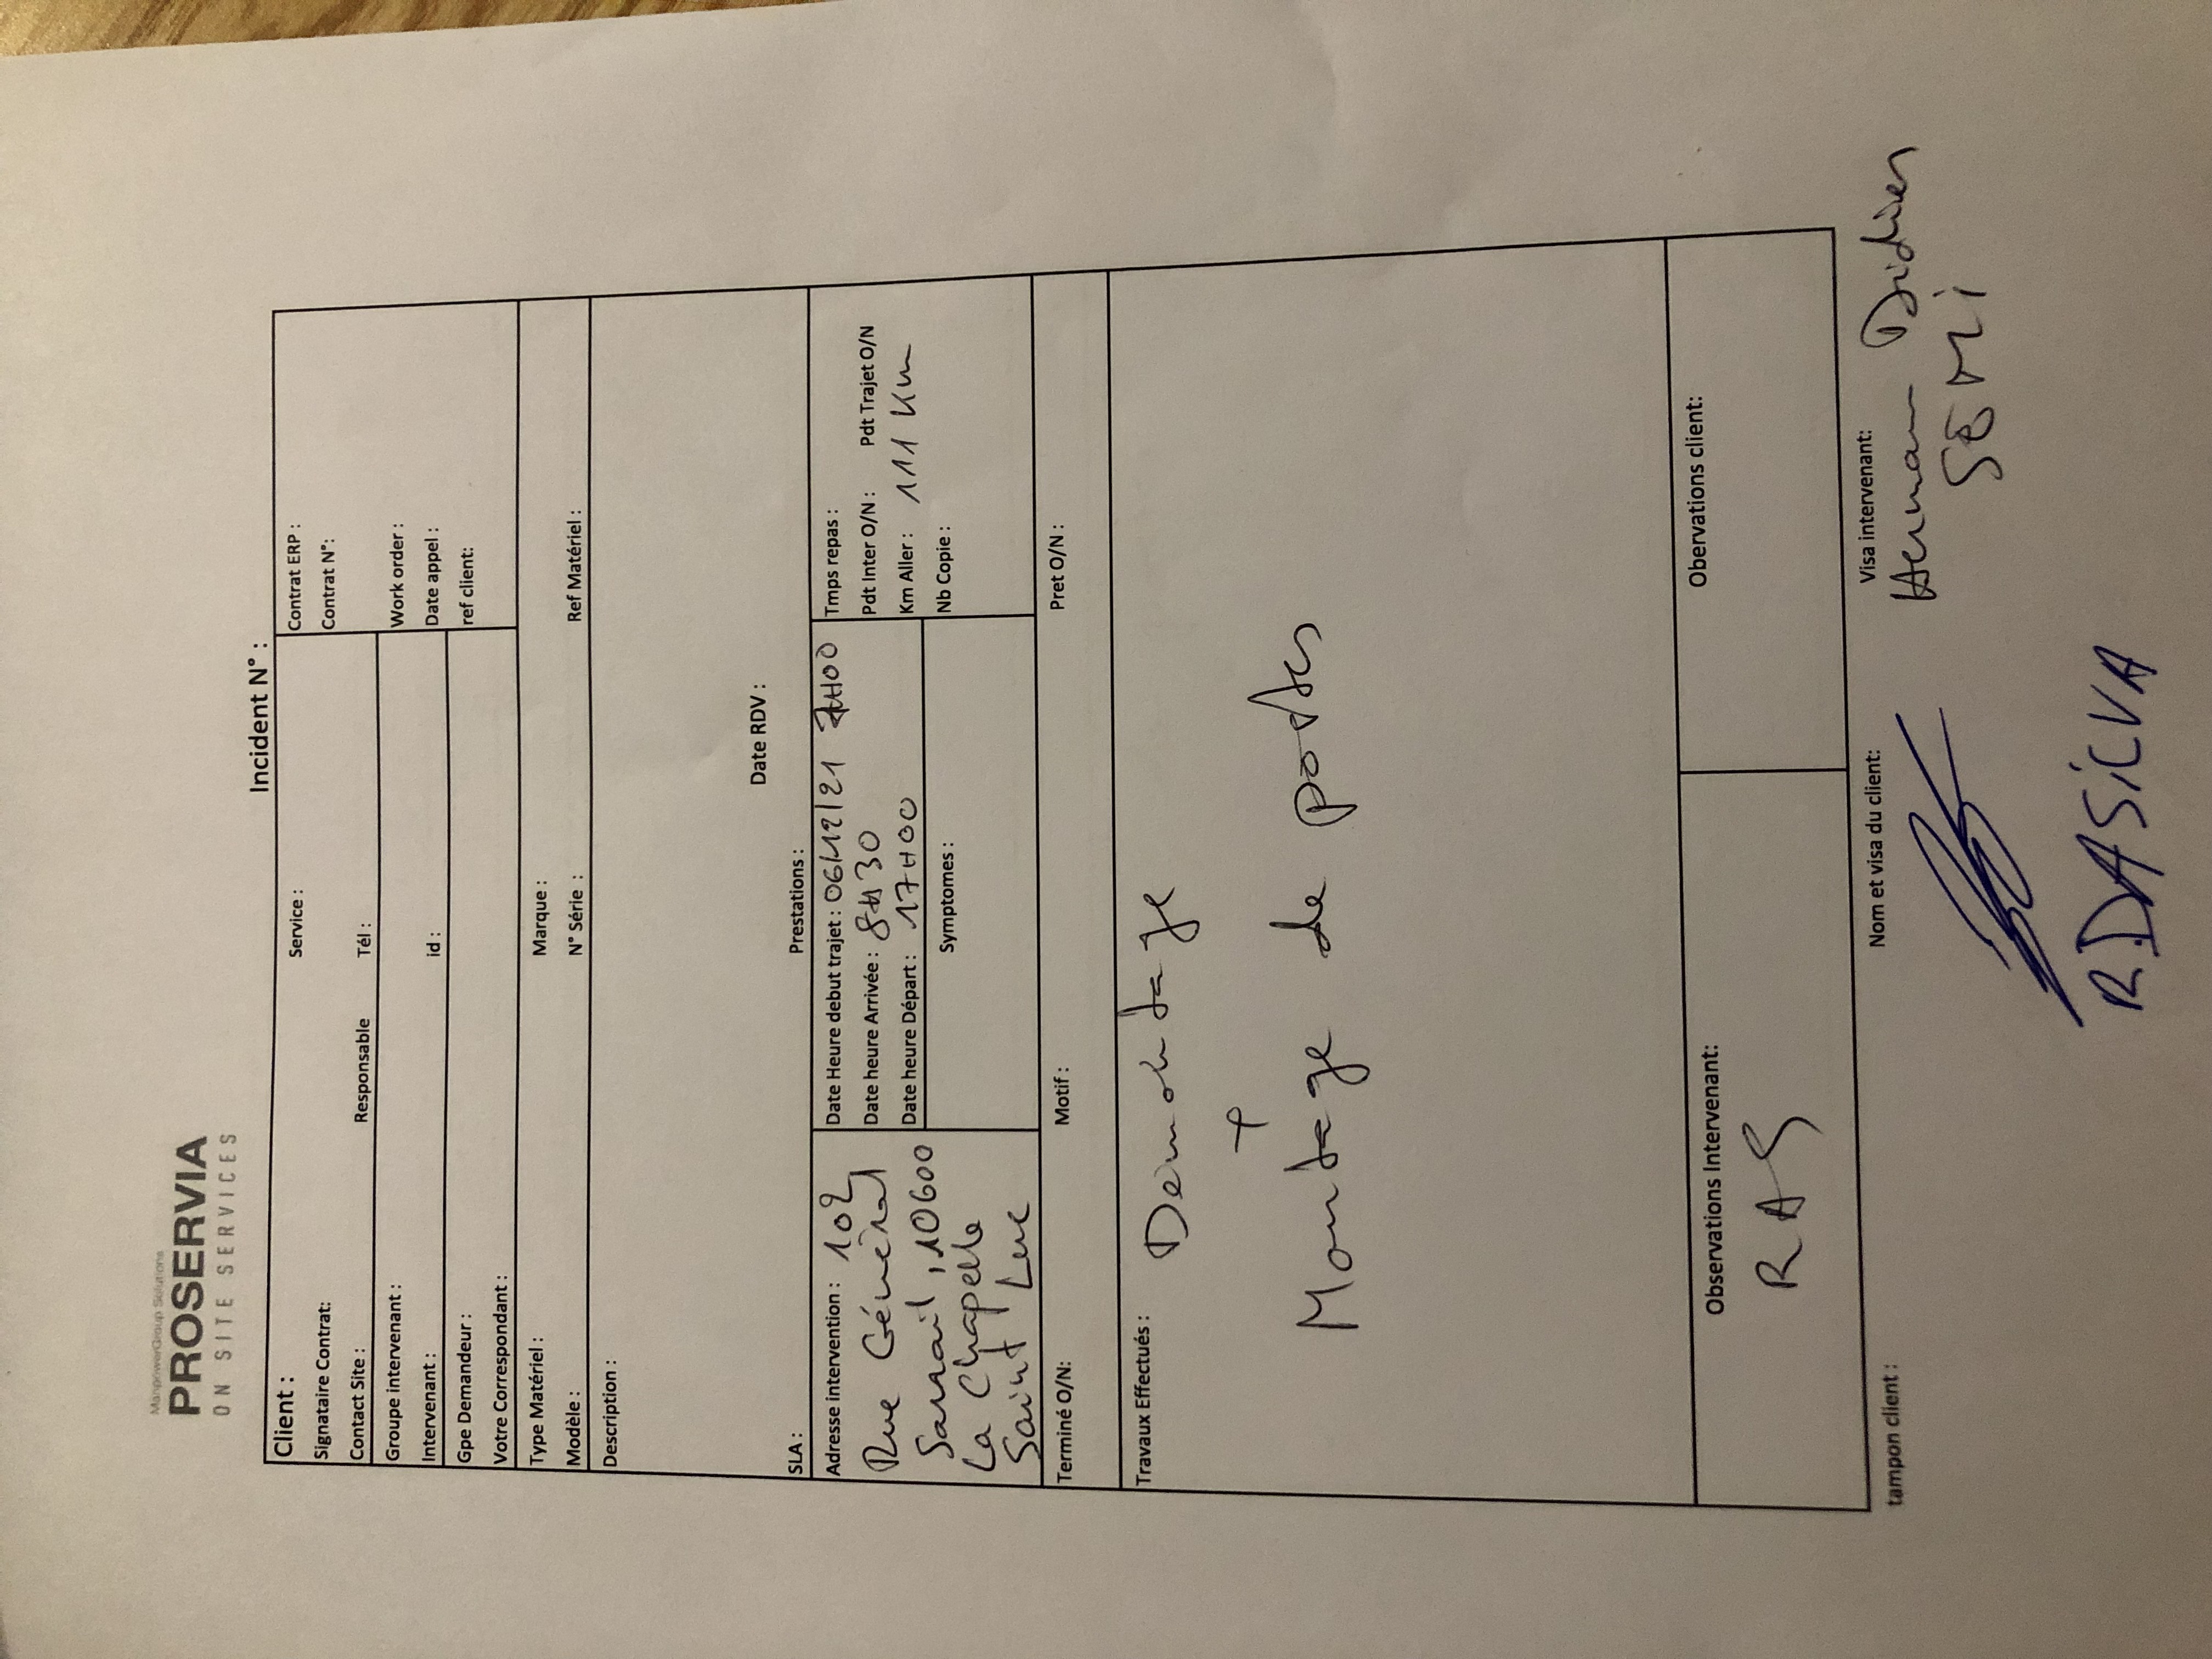 ManpowerGroup Solutions
PROSERVIA
ON SITE SERVICES
Incident N° :
Client :
Service :
Contrat ERP :
Signataire Contrat:
Contrat N°:
Contact Site :
Responsable
Tél :
Groupe intervenant :
Work order :
Intervenant :
id :
Date appel :
Gpe Demandeur :
ref client:
Votre Correspondant :
Type Matériel :
Marque :
Modèle :
N° Série :
Ref Matériel :
Description :
Date RDV :
SLA :
Prestations :
Adresse intervention : 102
Rue Général
Sarrail, 10600
La Chapelle
Saint Luc
Date Heure debut trajet : 06/12/21 7H00
Date heure Arrivée : 8H30
Date heure Départ : 17H00
Symptomes :
Tmps repas :
Pdt Inter O/N : Pdt Trajet O/N
Km Aller : 111 Km
Nb Copie :
Terminé O/N:
Motif :
Pret O/N :
Travaux Effectués : Démontage
+
Montage de postes
Observations Intervenant:
RAS
Obervations client:
tampon client :
Nom et visa du client:
R.DASiLVA
Visa intervenant:
Hermann Didier
SEMi